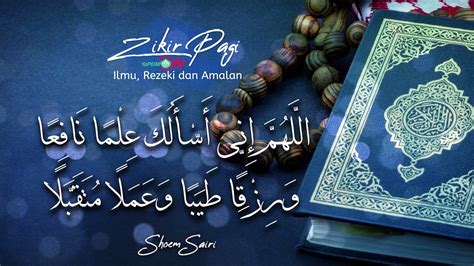 Zikir Pagi
YaPEIM
Ilmu, Rezeki dan Amalan
اللَّهُمَّ إِنِّي أَسْأَلُكَ عِلْمًا نَافِعًا
وَرِزْقًا طَيِّبًا وَعَمَلًا مُتَقَبَّلًا
Shoem Sairi